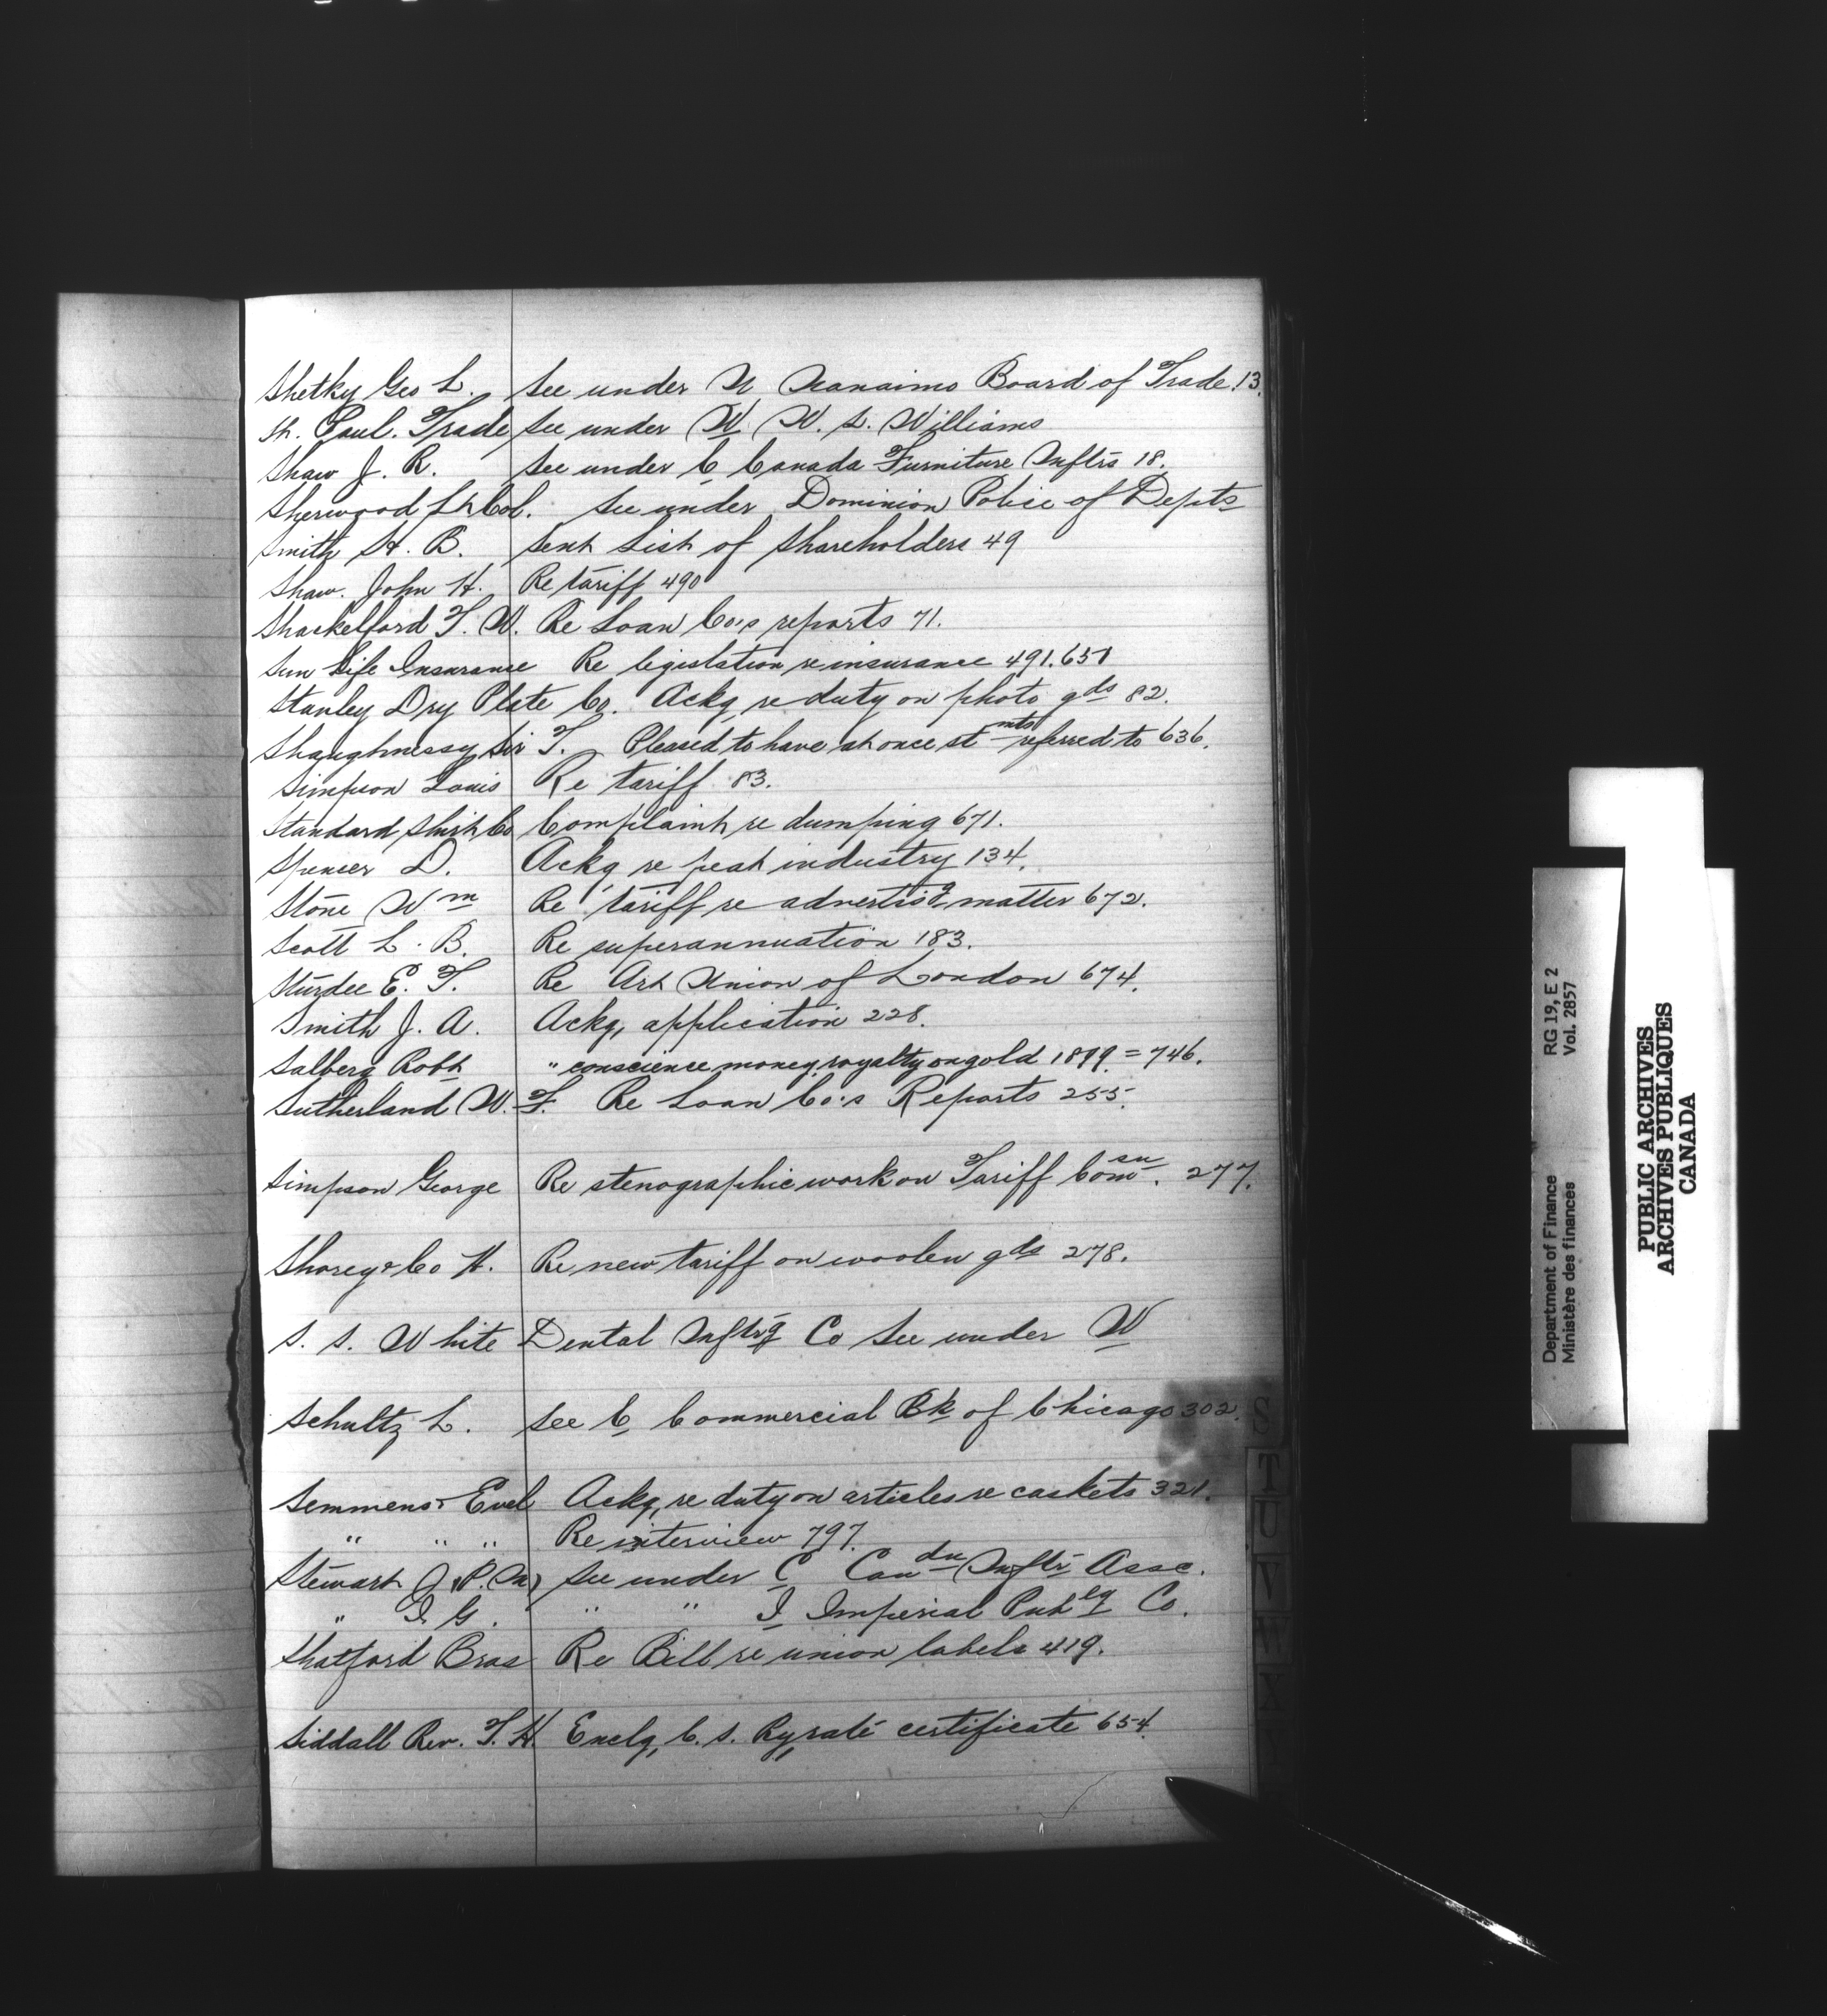 Shetky Geo L. See under N Nanaimo Board of Trade 13.
St. Paul. Trade See under W W. L. Williams
Shaw J. R. See under C Canada Furniture Mnftrs 18.
Sherwood Lt Col. See under Dominion Police of Depts
Smith H. B. Sent List of Shareholders 49
Shaw. John H. Re tariff 490
Shackelford T. W. Re Loan Co's reports 71.
Sun Life Insurance Re legislation re insurance 491. 651
Stanley Dry Plate Co. Ackg re duty on photo gds 82.
Shaughnessy Sir T. Pleased to have at once stmts referred to 636.
Simpson Louis Re tariff 83.
Standard Shirt Co Complaint re dumping 671.
Spenser D. Ackg re peat industry 134.
Stone Wm Re tariff re advertisg matter 672.
Scott L. B. Re superannuation 183.
Sturdee E. T. Re Art Union of London 674.
Smith J. A. Ackg, application 228.
Salberg Robt " conscience money royalty on gold 1899 = 746.
Sutherland W. F. Re Loan Co's Reports 255.
Simpson George Re stenographic work on Tariff Comsn. 277.
Shorey & Co H. Re new tariff on woolen gds 278.
S. S. White Dental Mnftrg Co See under W
Schultz L. See C Commercial Bk of Chicago 302.
Semmens & Evel Ackg, re duty on articles re caskets 321.
" " " Re interview 797.
Stewart J. See under C Candn Mnftr Assc.
" I. G. " " I Imperial Pubg Co.
Shatford Bros Re Bill re union labels 419.
Siddall Rev. T. H. Enclg, C. S. Ry, rate certificate 654.
S
T
U
V
W
X
RG 19, E 2
Vol. 2857
Department of Finance
Ministère des finances
PUBLIC ARCHIVES
ARCHIVES PUBLIQUES
CANADA